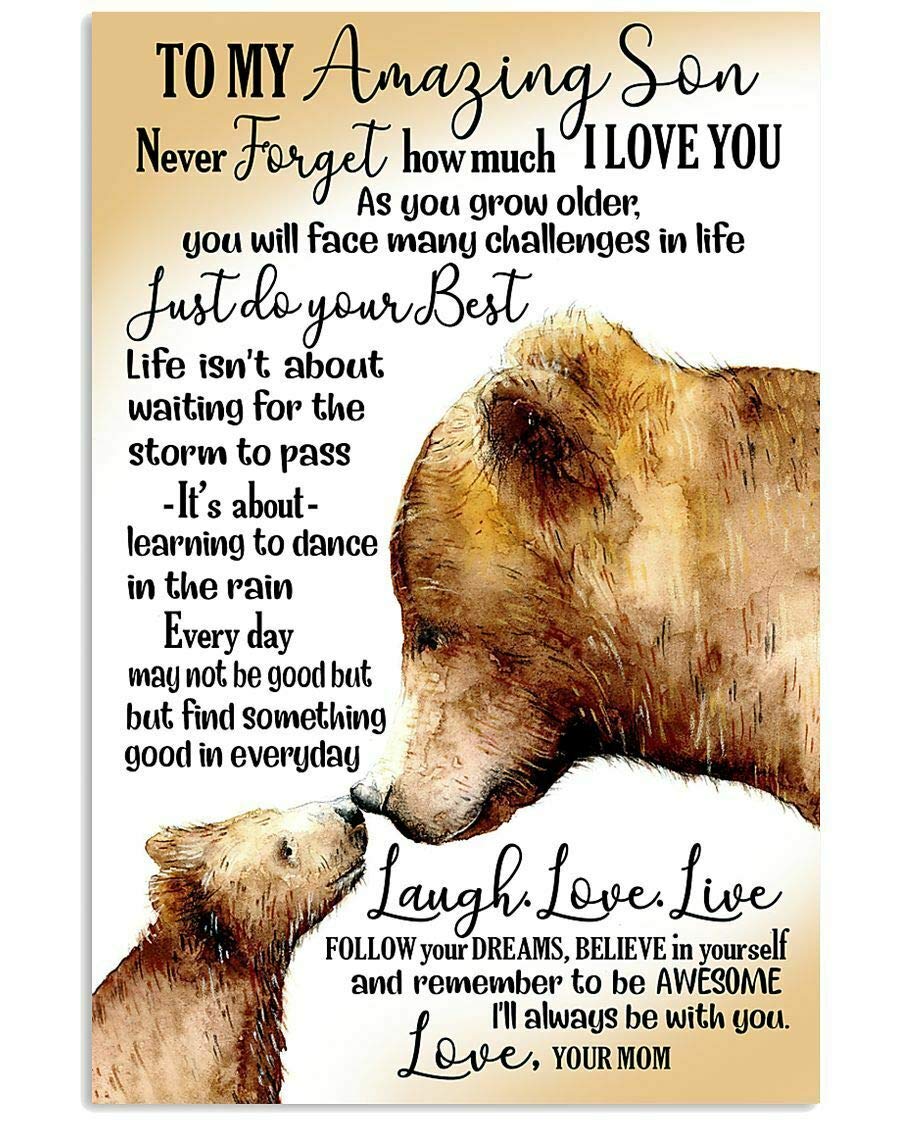 TO MY Amazing Son
Never Forget how much I LOVE YOU
As you grow older,
you will face many challenges in life
Just do your Best
Life isn't about
waiting for the
storm to pass
-It's about-
learning to dance
in the rain
Every day
may not be good but
but find something
good in everyday
Laugh. Love. Live
FOLLOW your DREAMS, BELIEVE in yourself
and remember to be AWESOME
I'll always be with you.
Love, YOUR MOM